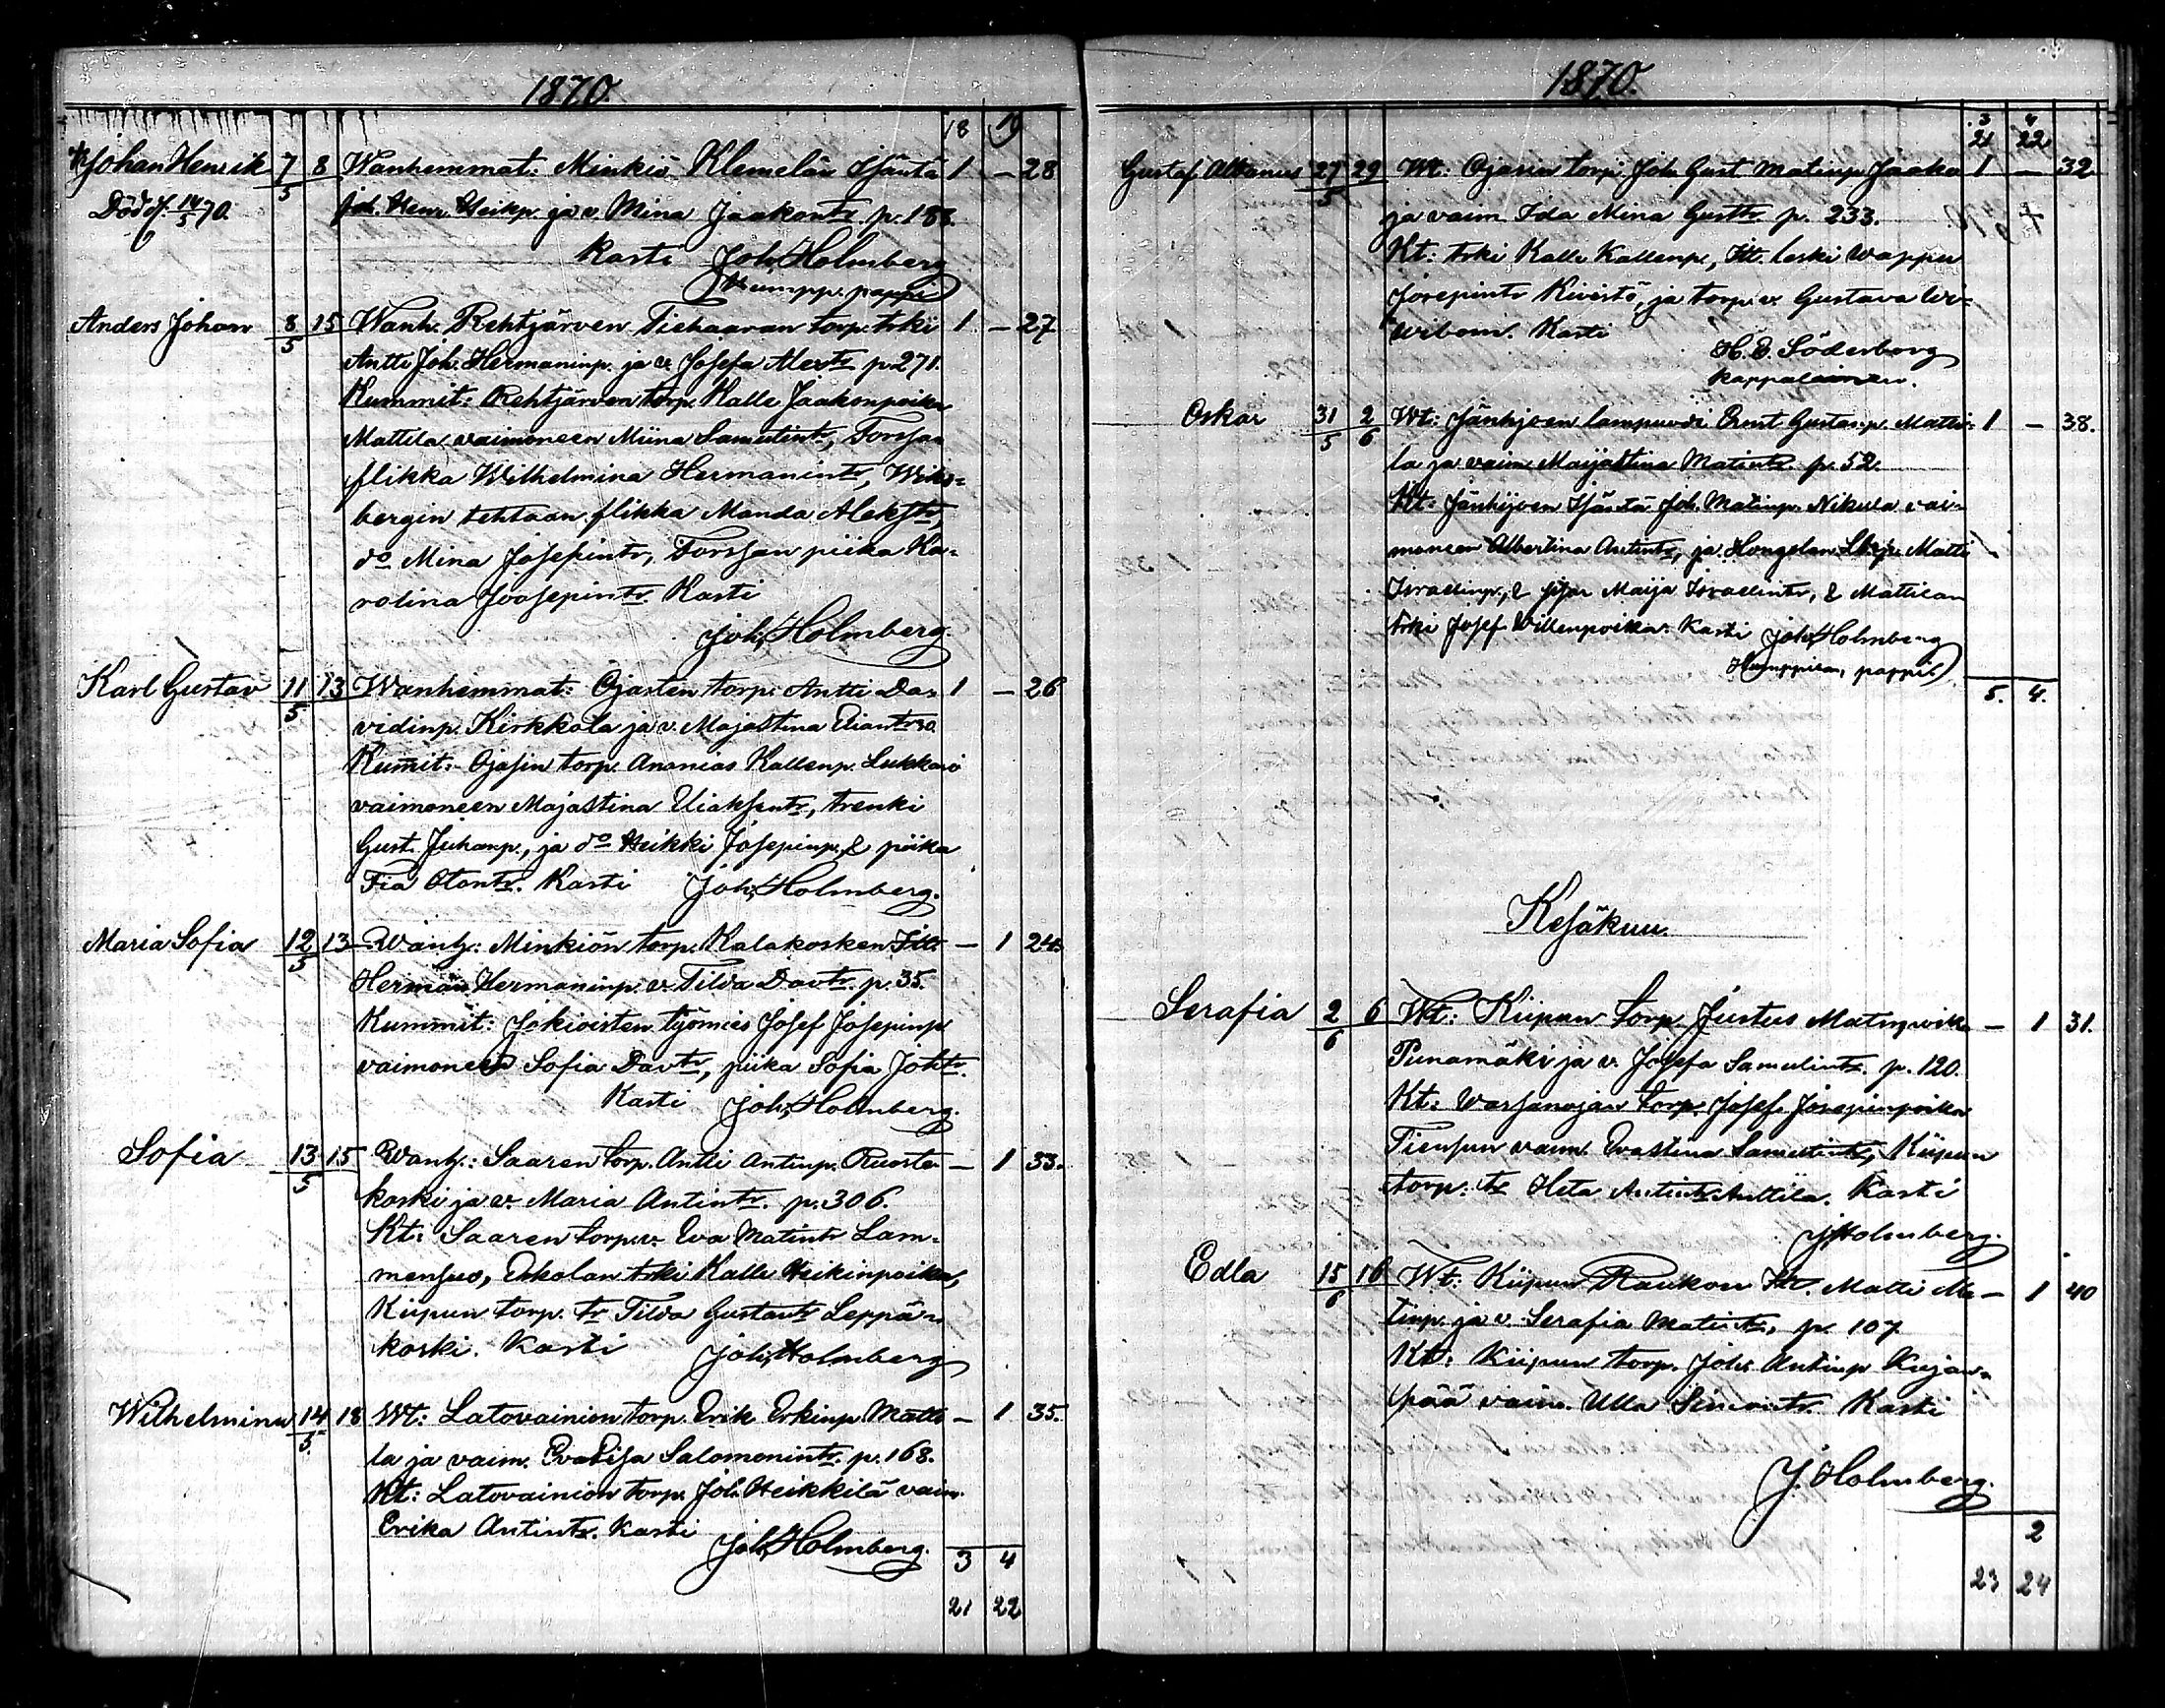 1870.
18 19
Johan Henrik 7/5 8 Wanhemmat: Minkiö Klemelän Isäntä 1 – 28
Död d. 14/5 70. Joh. Henr. Heikp. ja v. Mina Jaakontr. p. 188.
Kasti Joh. Holmberg
Humpp. pappi
Anders Johan 8/5 15 Wanh. Rehtjärven Tiehaaran torp. trki 1 – 27
Antti Joh. Hermaninp. ja v. Josefa Alextr p. 271.
Kummit: Rehtjärven torp. Kalle Jaakonpoika
Mattila vaimoneen Miina Samulintr, Forssan
flikka Wilhelmina Hermanintr, Wiks-
bergin tehtaan flikka Manda Alekstr,
do Mina Josepintr, Forssan piika Ka-
rolina Joosepintr. Kasti
Joh. Holmberg
Karl Gustav 11/5 13 Wanhemmat: Ojasten torp. Antti Da- 1 – 26
vidinp. Kirkkala ja v. Majastina Eliantr 30.
Kummit: Ojasin torp. Ananias Kallenp. Lukkarö
vaimoneen Majastina Eliaksentr, trenki
Gust. Juhanp., ja do Heikki Josepinp. & piika
Fia Otontr. Kasti Joh. Holmberg.
Maria Sofia 12/5 13 Wanh.: Minkiön torp. Kalakosken Itt. – 1 24.
Herman Hermaninp. v. Tilda Davtr. p. 35.
Kummit: Jokioisten työmies Josef Josepinp.
vaimoneen Sofia Davtr, piika Sofia Johtr.
Kasti Joh. Holmberg.
Sofia 13/5 15 Wanh.: Saaren torp. Antti Antinp. Ruoste- – 1 33.
koski ja v. Maria Antintr. p. 306.
Kt: Saaren torp. v. Eva Matintr Lam-
mensuo, Erkolan trki Kalle Heikinpoika,
Kiipun torp. tr Tilda Gustavtr Leppä-
koski. Kasti Joh. Holmberg
Wilhelmina 14/5 18 Wt: Latovainion torp. Erik Erkinp. Matti- – 1 35.
la ja vaim. Eva Lisa Salomonintr. p. 168.
Kt: Latovainion torp. Joh. Heikkilä vaim.
Erika Antintr. Kasti Joh. Holmberg.
3 4
21 22
1870.
3 4
21 22
Gustaf Albanus 27/5 29 Wt: Ojasin torp. Joh. Gust. Matinp. Jaako 1 – 32
ja vaim Ida Mina Gusttr p. 233.
Kt: trki Kalle Kallenp., Itt. leski Wappu
Josepintr Kivistö, ja torp. v. Gustava
Wibom. Kasti
H. E. Söderborg
kappalainen.
Oskar 31/5 2/6 Wt: Jänhijoen lampuodi Ernst Gustavp. Matti- 1 – 38.
la ja vaim Maijastina Matintr. p. 52.
Kt: Jänhijoen Isäntä Joh. Matinp. Nikula vai-
moneen Albertina Antintr, ja Hongolan Matti
Israelinp., & Maija Israelintr, & Mattilan
trki Josef Willenpoika. Kasti Joh. Holmberg
Humppilan, pappi
5. 4.
Kesäkuu.
Serafia 2/6 6 Wt: Kiipun torp. Justus Matinpoika – 1 31.
Punamäki ja v. Josefa Samulintr. p. 120.
Kt: Warsanojan torp. Josef Josepinpoika
Tiensuu vaim. Evastina Samulintr, Kiipun
torp. tr Heta Antintr Anttila. Kasti
J. Holmberg.
Edla 15/6 16 Wt: Kiipun Raukon Itt. Matti Ma- – 1 40
tinp. ja v. Serafia Matintr, p. 107
Kt: Kiipun torp. Joh. Antinp. Kujan-
pää vaim. Ulla Simontr. Kasti
J. Holmberg.
2
23 24